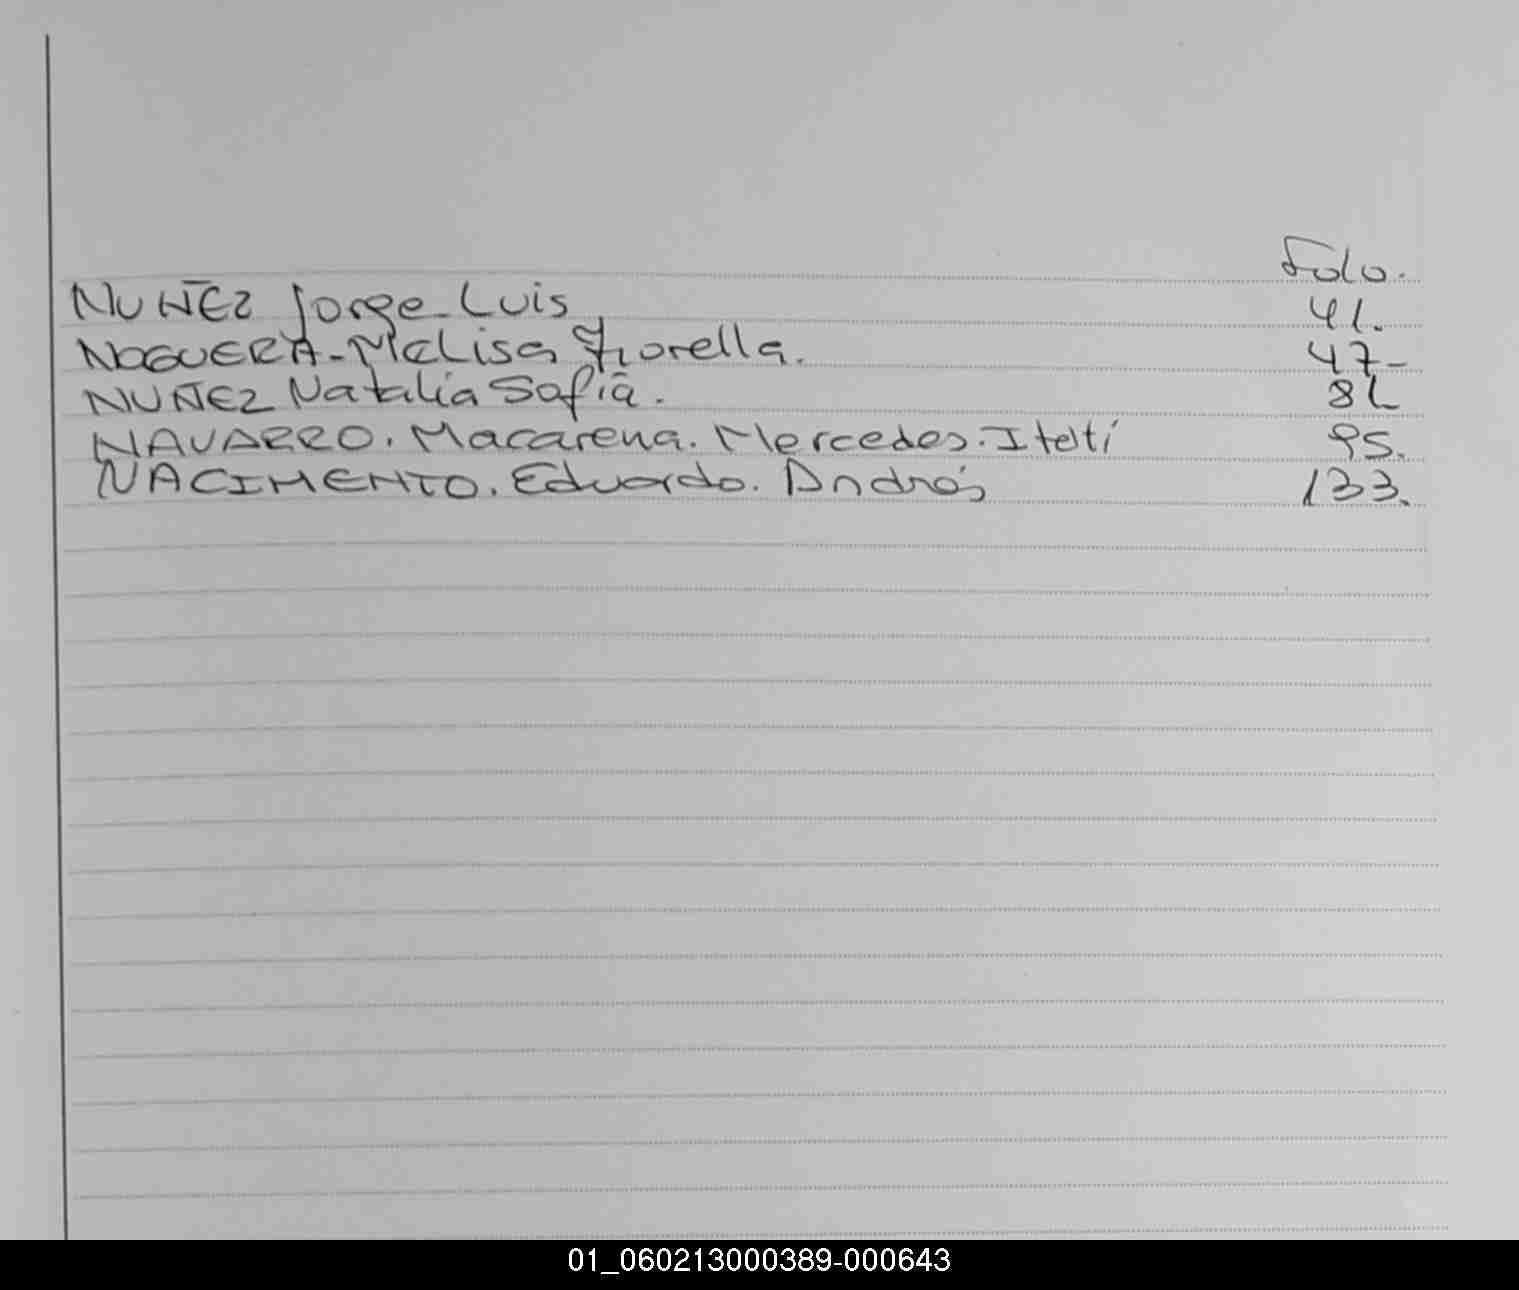 Folo.
NUÑEZ Jorge Luis 41.
NOGUERA-Melisa Fiorella. 47-
NUÑEZ Natalia Sofia. 81
NAVARRO. Macarena. Mercedes. Itatí 95.
NACIMENTO. Eduardo. Andrés 133.
01_060213000389-000643